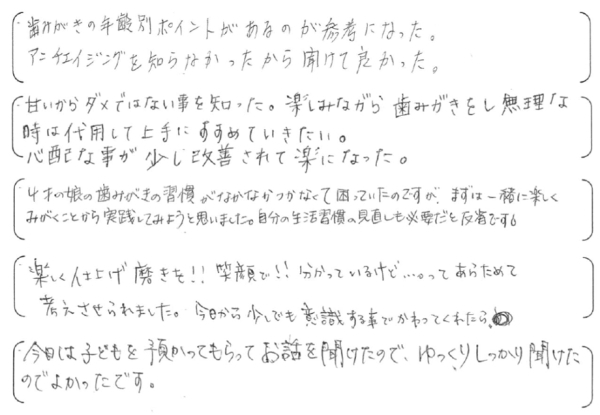 歯みがきの年齢別ポイントがあるのが参考になった。
アンチエイジングを知らなかったから聞けて良かった。
甘いからダメではない事を知った。楽しみながら歯みがきをし無理な
時は代用して上手にすすめていきたい。
心配な事が少し改善されて楽になった。
4才の娘の歯みがきの習慣がなかなかつかなくて困っていたのですが、まずは一緒に楽しく
みがくことから実践してみようと思いました。自分の生活習慣の見直しも必要だと反省です。
楽しく仕上げ磨きを!!笑顔で!!分かっているけど…。ってあらためて
考えさせられました。今日から少しでも意識する事でかわってくれたら。
今日は子どもを預かってもらってお話を聞けたので、ゆっくりしっかり聞けた
のでよかったです。